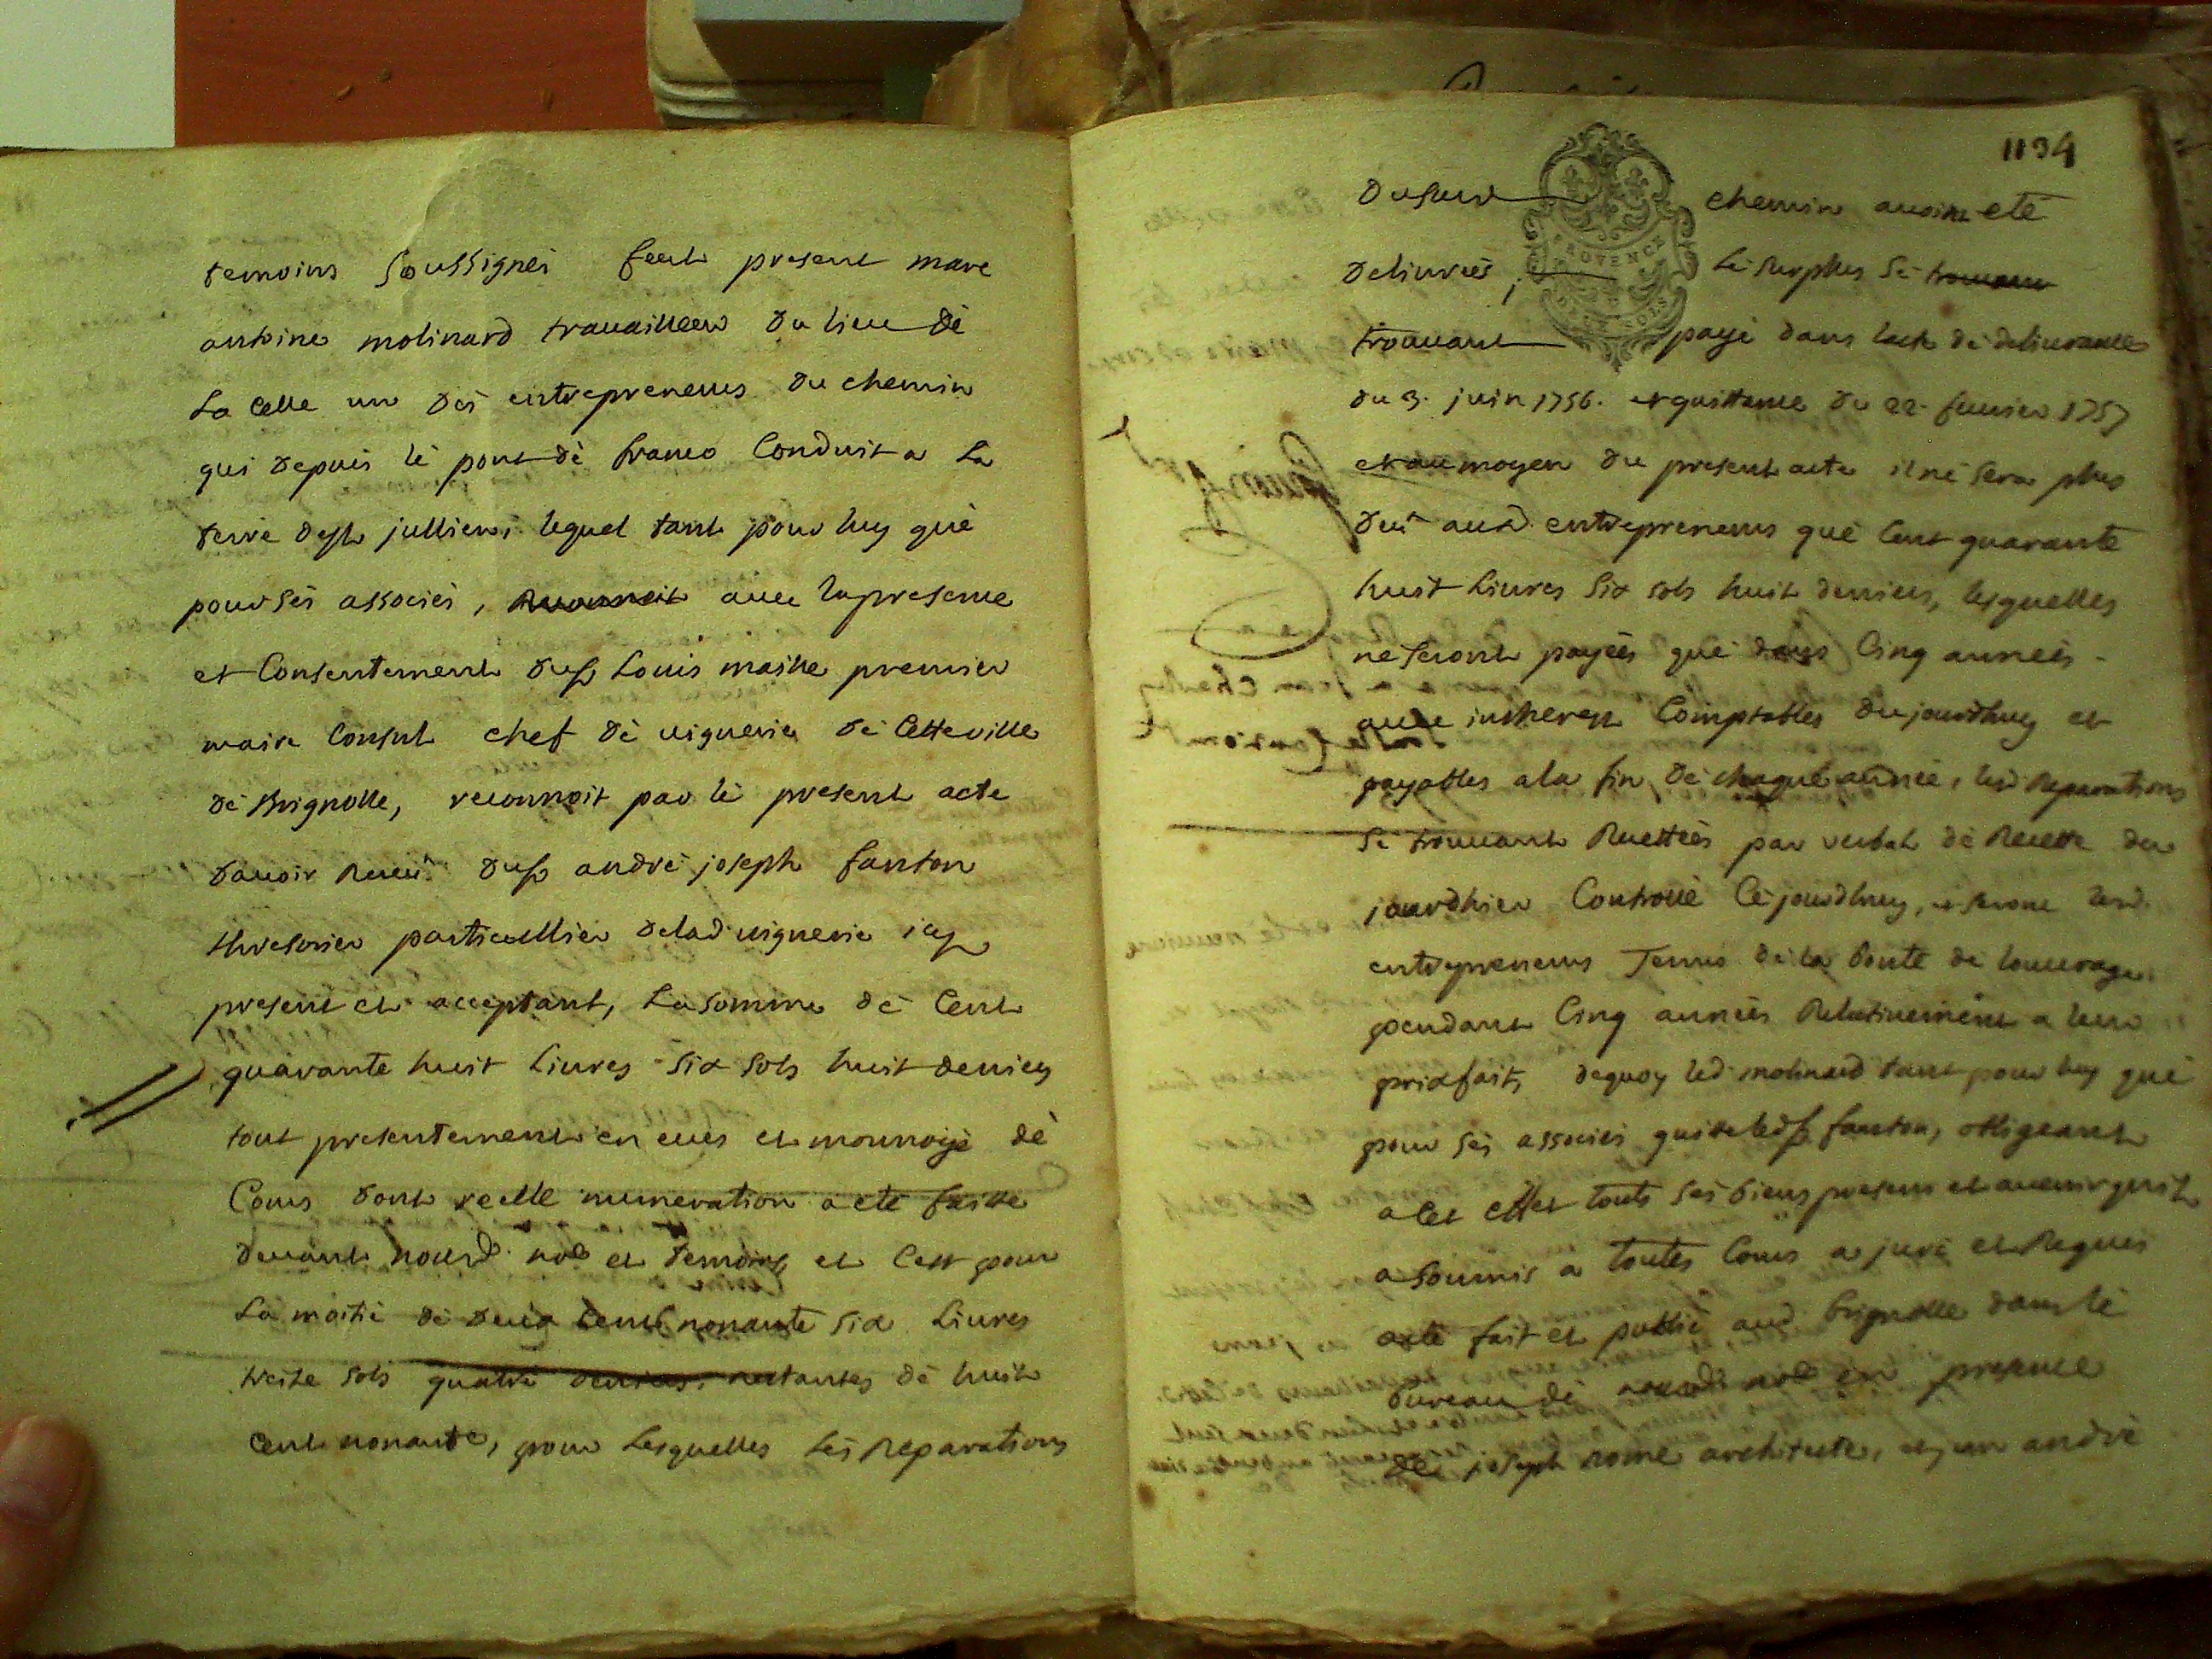 temoins soussignés feut present marc
antoine molinard travailleur du lieu dè
La Celle un des entrepreneurs du chemin
qui depuis lè pont dè franco Conduit a La
terre dest jullien, lequel tant pour luy què
pour sés associés, avec la presence
et Consentement du sr Louis maille premier
maire Consul chef dè viguerie dè Cetteville
dè Brignolle, reconnoit par lè present acte
davoir Receu du sr andré joseph fanton
thresorier particullier delad viguerie icy
present et acceptant, La somme dè Cent
quarante huit Livres six sols huit deniers
tout presentement en ecus et monnoye dè
Cours dont reelle numeration a eté faitte
devant nousd. nore et temoins et Cest pour
La moitié dè deux Cents nonante six Livres
treise sols quatre deniers, restantes dè huit
Cent nonante, pour Lesquelles Lés Reparations
1134
PROVENCE
DEUX SOLS
Dususd chemin avoint eté
Delivrées, Le surplus sè trouvant
trouvant payé dans lacte dè deliverance
du 3. juin 1756. et quittance du 22. fevrier 1757
et au moyen du present acte il nè sera plus
deu ausd. entrepreneurs què Cent quarante
huit Livres six sols huit deniers, lesquelles
ne seront payées què dans Cinq années
avec intherest Comptables dujourdhuy et
payables a la fin dè chaque année, lesd Reparations
sè trouvant Recettées par verbal dè Recette du
jourdhier Controllé Cèjourdhuy, et seront lesd.
entrepreneurs Tenus dè la bonté de louvrage
pendant Cinq années Relativement a leur
prixfait, dequoy led. molinard tant pour luy què
pour sés associés quitte led sr fanton, obligeant
a cet effet touts sés biens presens et avenir quil
a soumis a toutes Cours a juré et Requis
acte fait et publié aud Brignolle dans lè
bureau dè nousd. nore en presence
de joseph rome architecte, et jean andré